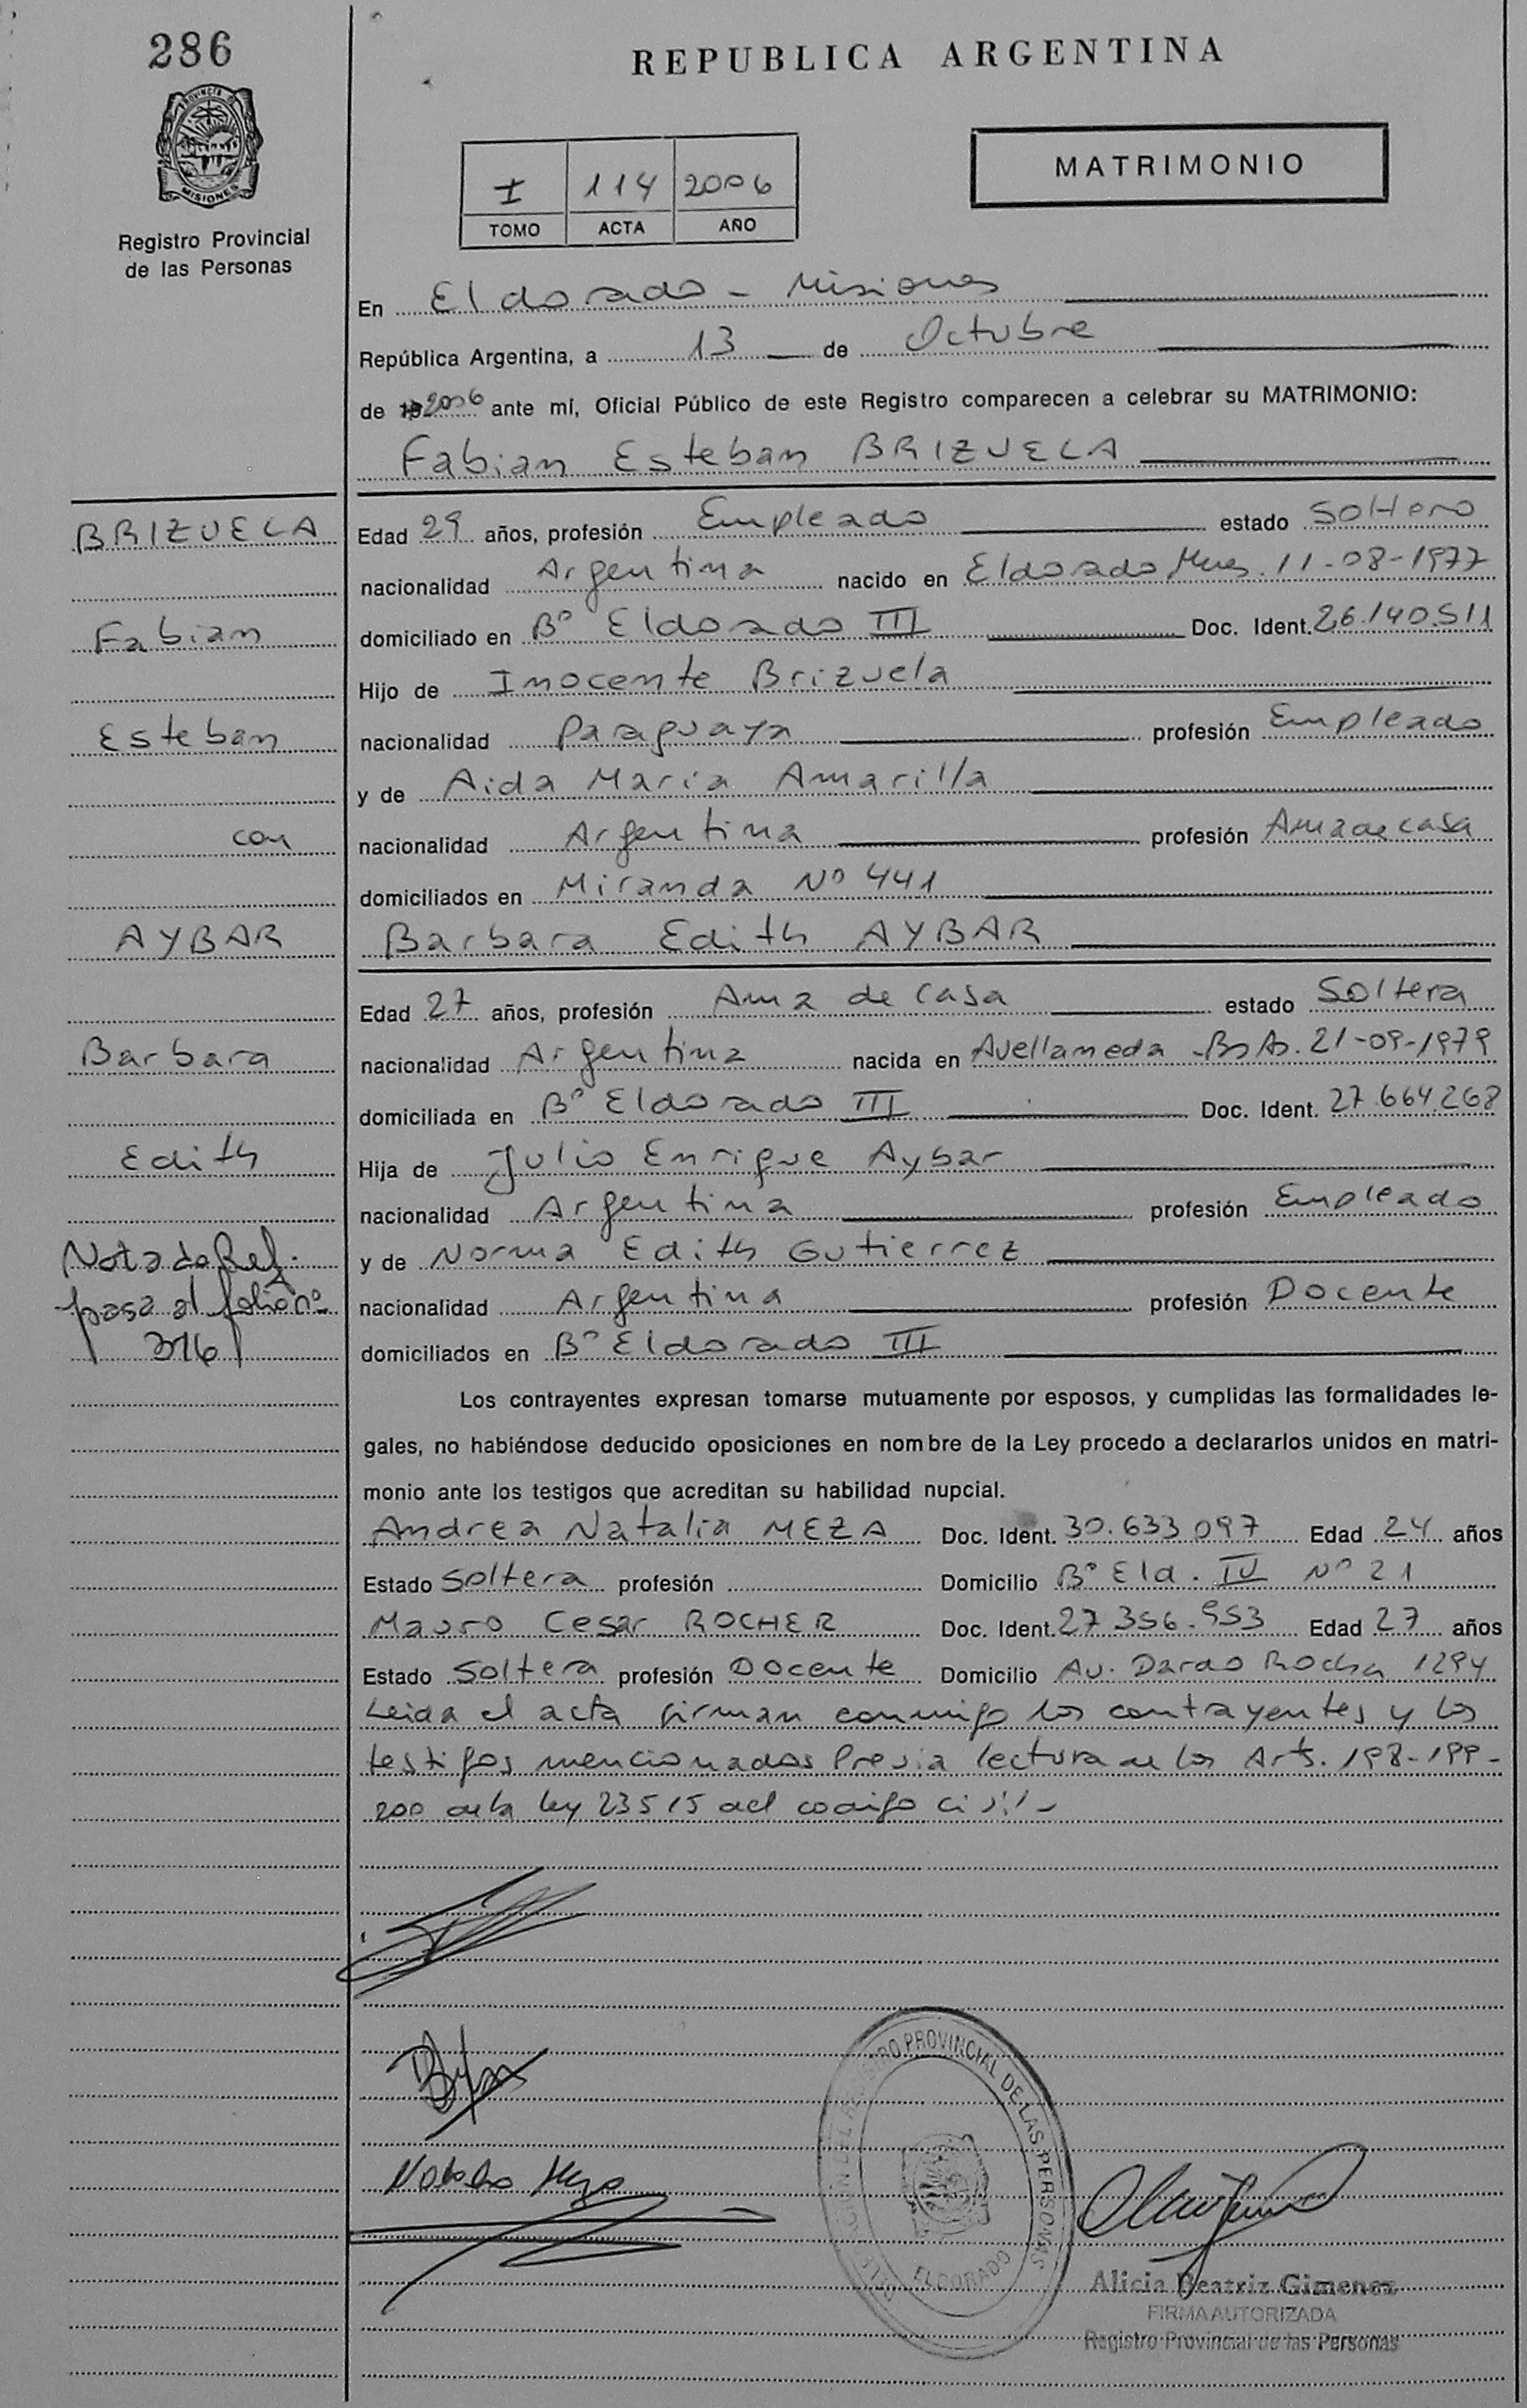 286
REPUBLICA ARGENTINA
PROVINCIA DE
MISIONES
Registro Provincial
de las Personas
I 114 2006
TOMO ACTA AÑO
MATRIMONIO
En Eldorado - Misiones
República Argentina, a 13 de Octubre
de 19 2006 ante mí, Oficial Público de este Registro comparecen a celebrar su MATRIMONIO:
Fabian Esteban BRIZUELA
BRIZUELA
Fabian
Esteban
con
AYBAR
Barbara
Edith
Nota de Ref.
pasa al folio nº
316
Edad 29 años, profesión Empleado estado Soltero
nacionalidad Argentina nacido en Eldorado Mnes. 11-08-1977
domiciliado en Bº Eldorado III Doc. Ident. 26.140.511
Hijo de Inocente Brizuela
nacionalidad Paraguaya profesión Empleado
y de Aida Maria Amarilla
nacionalidad Argentina profesión Ama de casa
domiciliados en Miranda Nº 441
Barbara Edith AYBAR
Edad 27 años, profesión Ama de casa estado Soltera
nacionalidad Argentina nacida en Avellaneda Bs As. 21-09-1979
domiciliada en Bº Eldorado III Doc. Ident. 27.664.268
Hija de Julio Enrique Aybar
nacionalidad Argentina profesión Empleado
y de Norma Edith Gutierrez
nacionalidad Argentina profesión Docente
domiciliados en Bº Eldorado III
Los contrayentes expresan tomarse mutuamente por esposos, y cumplidas las formalidades le-
gales, no habiéndose deducido oposiciones en nombre de la Ley procedo a declararlos unidos en matri-
monio ante los testigos que acreditan su habilidad nupcial.
Andrea Natalia MEZA Doc. Ident. 30.633.097 Edad 24 años
Estado Soltera profesión Domicilio Bº Eld. IV Nº 21
Mauro Cesar ROCHER Doc. Ident. 27.356.953 Edad 27 años
Estado Soltera profesión Docente Domicilio Av. Dardo Rocha 1294
Leida el acta firman conmigo los contrayentes y los
testigos mencionados Previa lectura de los Arts. 198-199-
200 de la ley 23515 del codigo civil-
REGISTRO PROVINCIAL DE LAS PERSONAS
ELDORADO
Alicia Beatriz Gimenez
FIRMA AUTORIZADA
Registro Provincial de las Personas